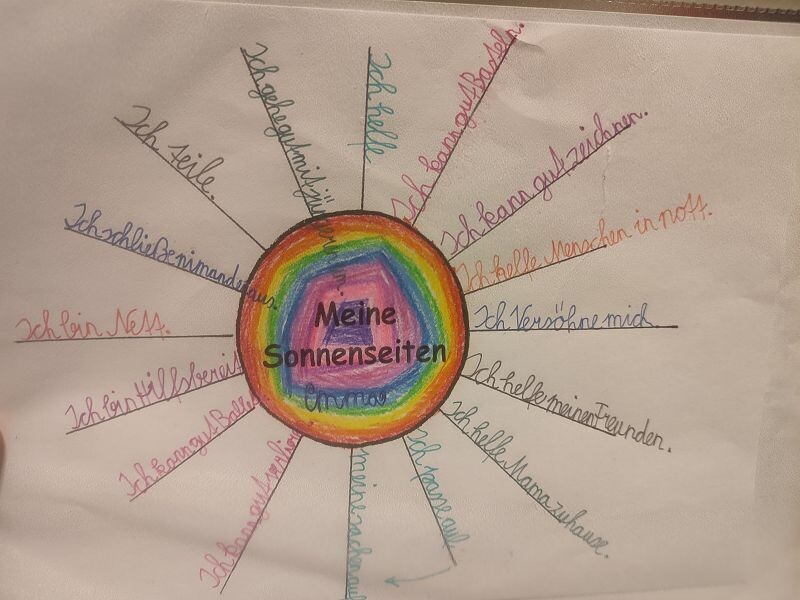 Meine
Sonnenseiten
Emma
Ich helfe
Ich kann gut Basteln.
Ich kann gut zeichnen.
Ich helfe Menschen in nott.
Ich Versöhne mich
Ich helfe meinen Freunden.
Ich helfe Mama zuhause.
Ich passe auf
meine sachen auf
Ich kann gut
Ich kann gut
Ich bin Hilfsbereit
Ich bin Nett.
Ich schließe nimanden aus.
Ich teile.
Ich gehe gut mit jüngern um.